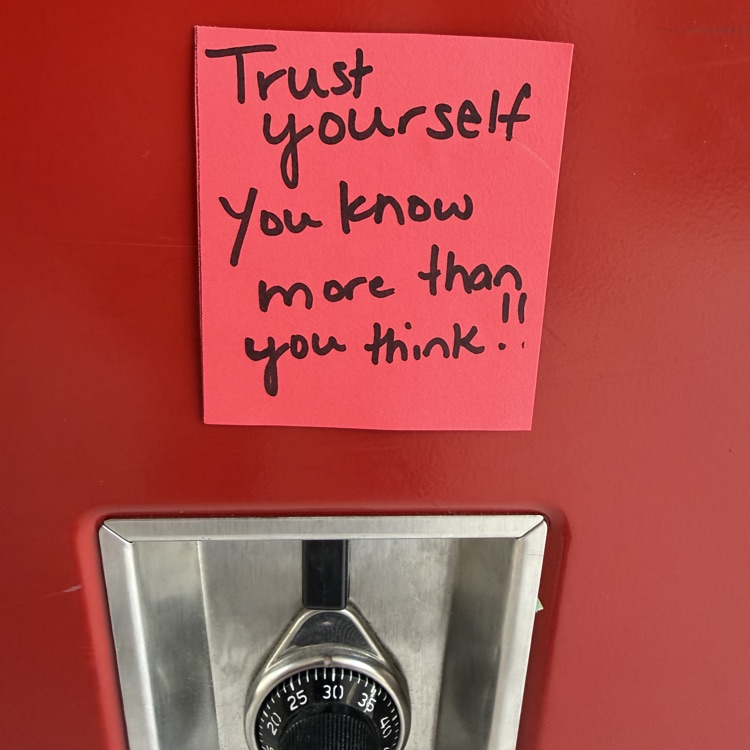 Trust
yourself
You know
more than
you think!!
20 25 30 35 40